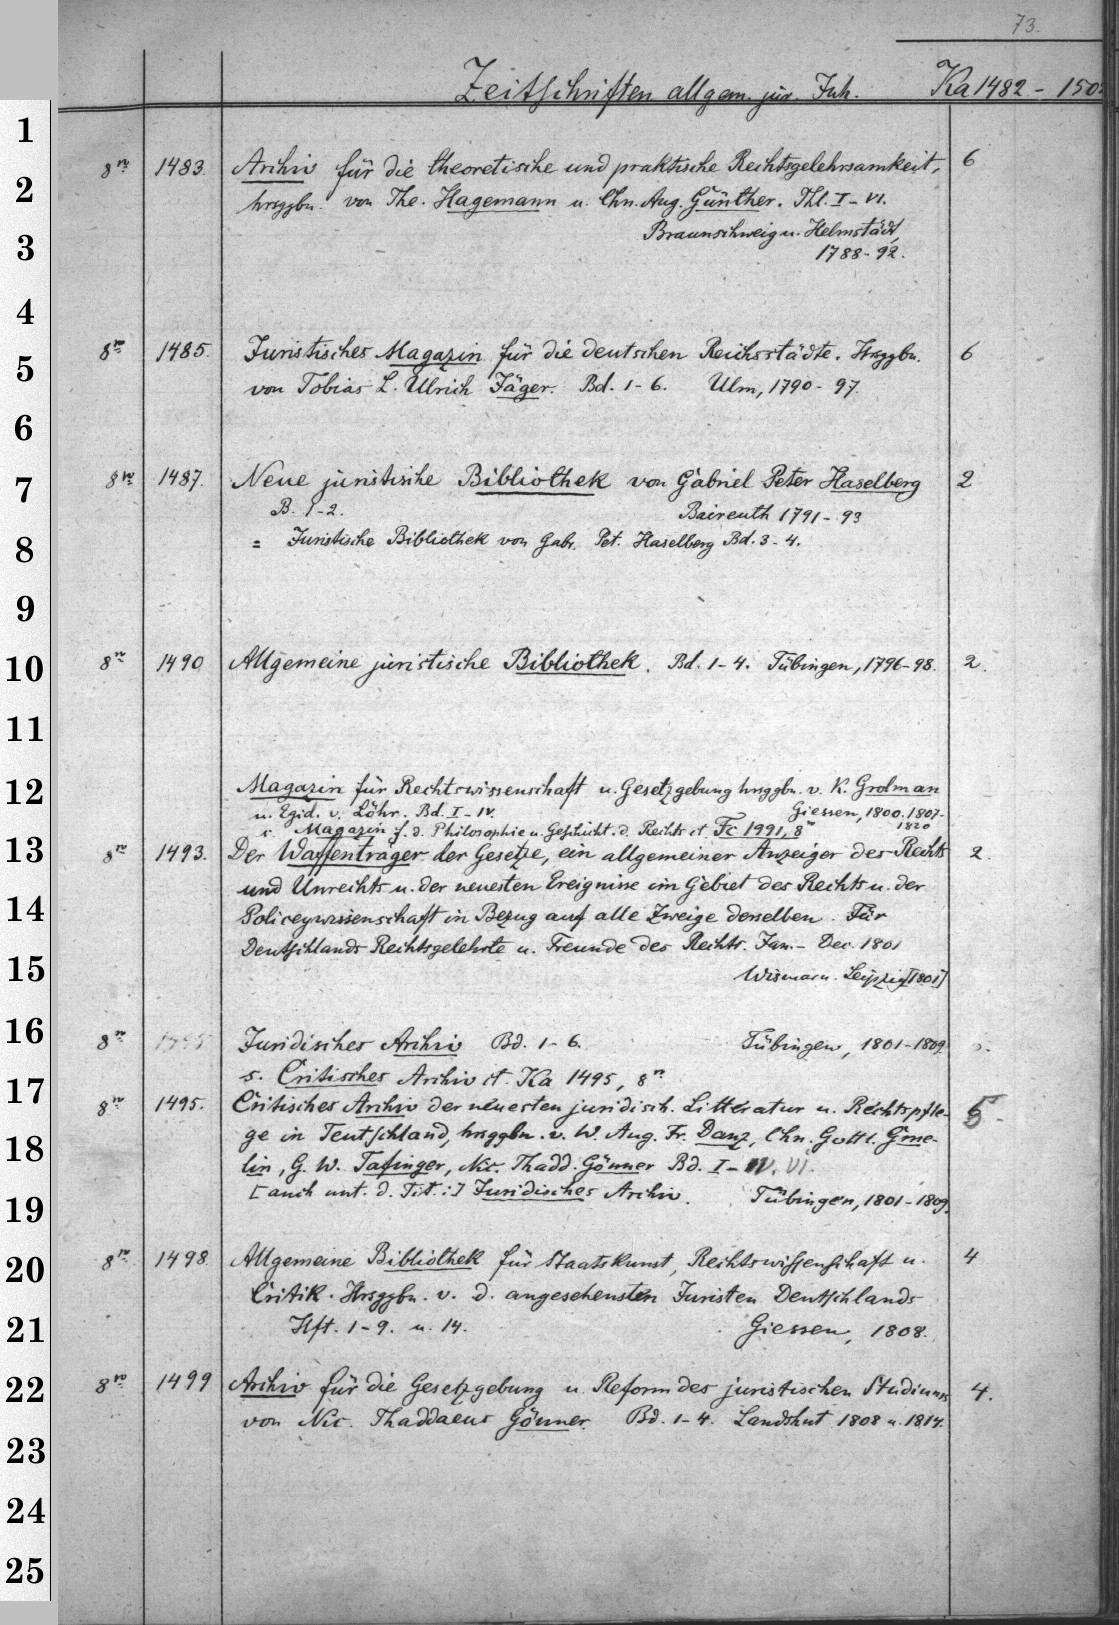 73.
Zeitschriften allgem. jur. Inh. Ka 1482 - 150
8º 1483. Archiv für die theoretische und praktische Rechtsgelehrsamkeit, 6
hrsggbn. von The. Hagemann u. Chn. Aug. Günther. Thl. I - VI.
Braunschweig u. Helmstädt
1788 - 92.
8º 1485. Juristisches Magazin für die deutschen Reichsstädte. Hrsggbn. 6
von Tobias L. Ulrich Jäger. Bd. 1 - 6. Ulm, 1790 - 97.
8º 1487. Neue juristische Bibliothek von Gabriel Peter Haselberg 2
B. 1 - 2. Baireuth 1791 - 93
= Juristische Bibliothek von Gabr. Pet. Haselberg Bd. 3 - 4.
8º 1490 Allgemeine juristische Bibliothek. Bd. 1 - 4. Tübingen, 1796 - 98. 2.
Magazin für Rechtswissenschaft u. Gesetzgebung hrsggbn. v. K. Grolman
u. Egid. v. Löhr. Bd. I - IV. Giessen, 1800. 1807 -
1820
Magazin f. d. Philosophie u. Geschicht. d. Rechts ct Fc 1991, 8º
8º 1493. Der Waffenträger der Gesetze, ein allgemeiner Anzeiger des Rechts 2.
und Unrechts u. der neuesten Ereignisse im Gebiet des Rechts u. der
Policeywissenschaft in Bezug auf alle Zweige derselben. Für
Deutschlands Rechtsgelehrte u. Freunde des Rechts. Jan. - Dec. 1801
Wismar u. Leipzig [1801]
8º Juridisches Archiv Bd. 1 - 6. Tübingen, 1801 - 1809.
s. Critisches Archiv ct. Ka 1495, 8º
8º 1495. Critisches Archiv der neuesten juridisch. Litteratur u. Rechtspfle-
ge in Teutschland, hrsggbn. v. W. Aug. Fr. Danz, Chn. Gottl. Gme-
lin, G. W. Tafinger, Nic. Thadd. Gönner Bd. I - VI.
[auch unt. d. Tit.:] Juridisches Archiv. Tübingen, 1801 - 1809.
8º 1498. Allgemeine Bibliothek für Staatskunst, Rechtswissenschaft u. 4
Critik. Hrsggbn. v. d. angesehensten Juristen Deutschlands
Hft. 1 - 9. u. 14. Giessen, 1808.
8º 1499 Archiv für die Gesetzgebung u. Reform des juristischen Studiums 4.
von Nic. Thaddaeus Gönner. Bd. 1 - 4. Landshut 1808 u. 1814.
1
2
3
4
5
6
7
8
9
10
11
12
13
14
15
16
17
18
19
20
21
22
23
24
25